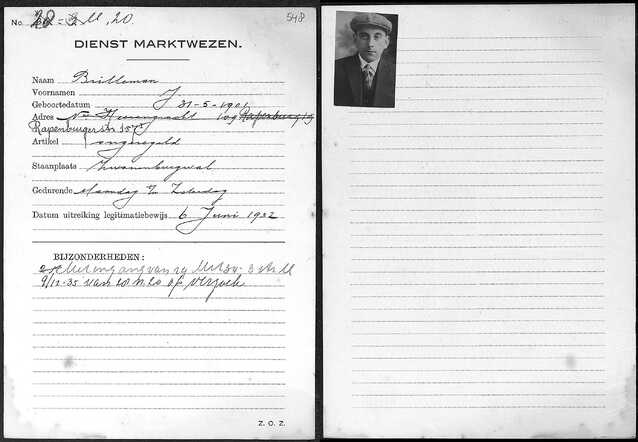 No. 28 20. 548
DIENST MARKTWEZEN.
Naam Brilleman
Voornamen J
Geboortedatum 31-5-1901
Adres Nw Heerengracht 109 Rapenburg 19
Rapenburgerstr 157
Artikel ongeregeld
Staanplaats Zwanenburgwal
Gedurende Maandag Zaterdag
Datum uitreiking legitimatiebewijs 6 Juni 1932
BIJZONDERHEDEN:
Met ingang van 29
9/12-35 van 28 n. 20 op verzoek
Z. O. Z.